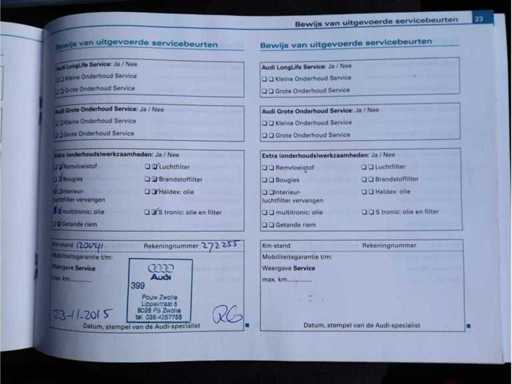 Bewijs van uitgevoerde servicebeurten 23
Bewijs van uitgevoerde servicebeurten
Audi LongLife Service: Ja / Nee
Kleine Onderhoud Service
Grote Onderhoud Service
Audi Grote Onderhoud Service: Ja / Nee
Kleine Onderhoud Service
Grote Onderhoud Service
Extra (onderhouds)werkzaamheden: Ja / Nee
Remvloeistof Luchtfilter
Bougies Brandstoffilter
Interieur- Haldex: olie
luchtfilter vervangen
multitronic: olie S tronic: olie en filter
Getande riem
Km-stand Rekeningnummer 272255
Mobiliteitsgarantie t/m:
Weergave Service
max. km
Audi
399
Pouw Zwolle
8028 PB Zwolle
23-11-2015
RG
Datum, stempel van de Audi-specialist
Bewijs van uitgevoerde servicebeurten
Audi LongLife Service: Ja / Nee
Kleine Onderhoud Service
Grote Onderhoud Service
Audi Grote Onderhoud Service: Ja / Nee
Kleine Onderhoud Service
Grote Onderhoud Service
Extra (onderhouds)werkzaamheden: Ja / Nee
Remvloeistof Luchtfilter
Bougies Brandstoffilter
Interieur- Haldex: olie
luchtfilter vervangen
multitronic: olie S tronic: olie en filter
Getande riem
Km-stand Rekeningnummer
Mobiliteitsgarantie t/m:
Weergave Service
max. km
Datum, stempel van de Audi-specialist